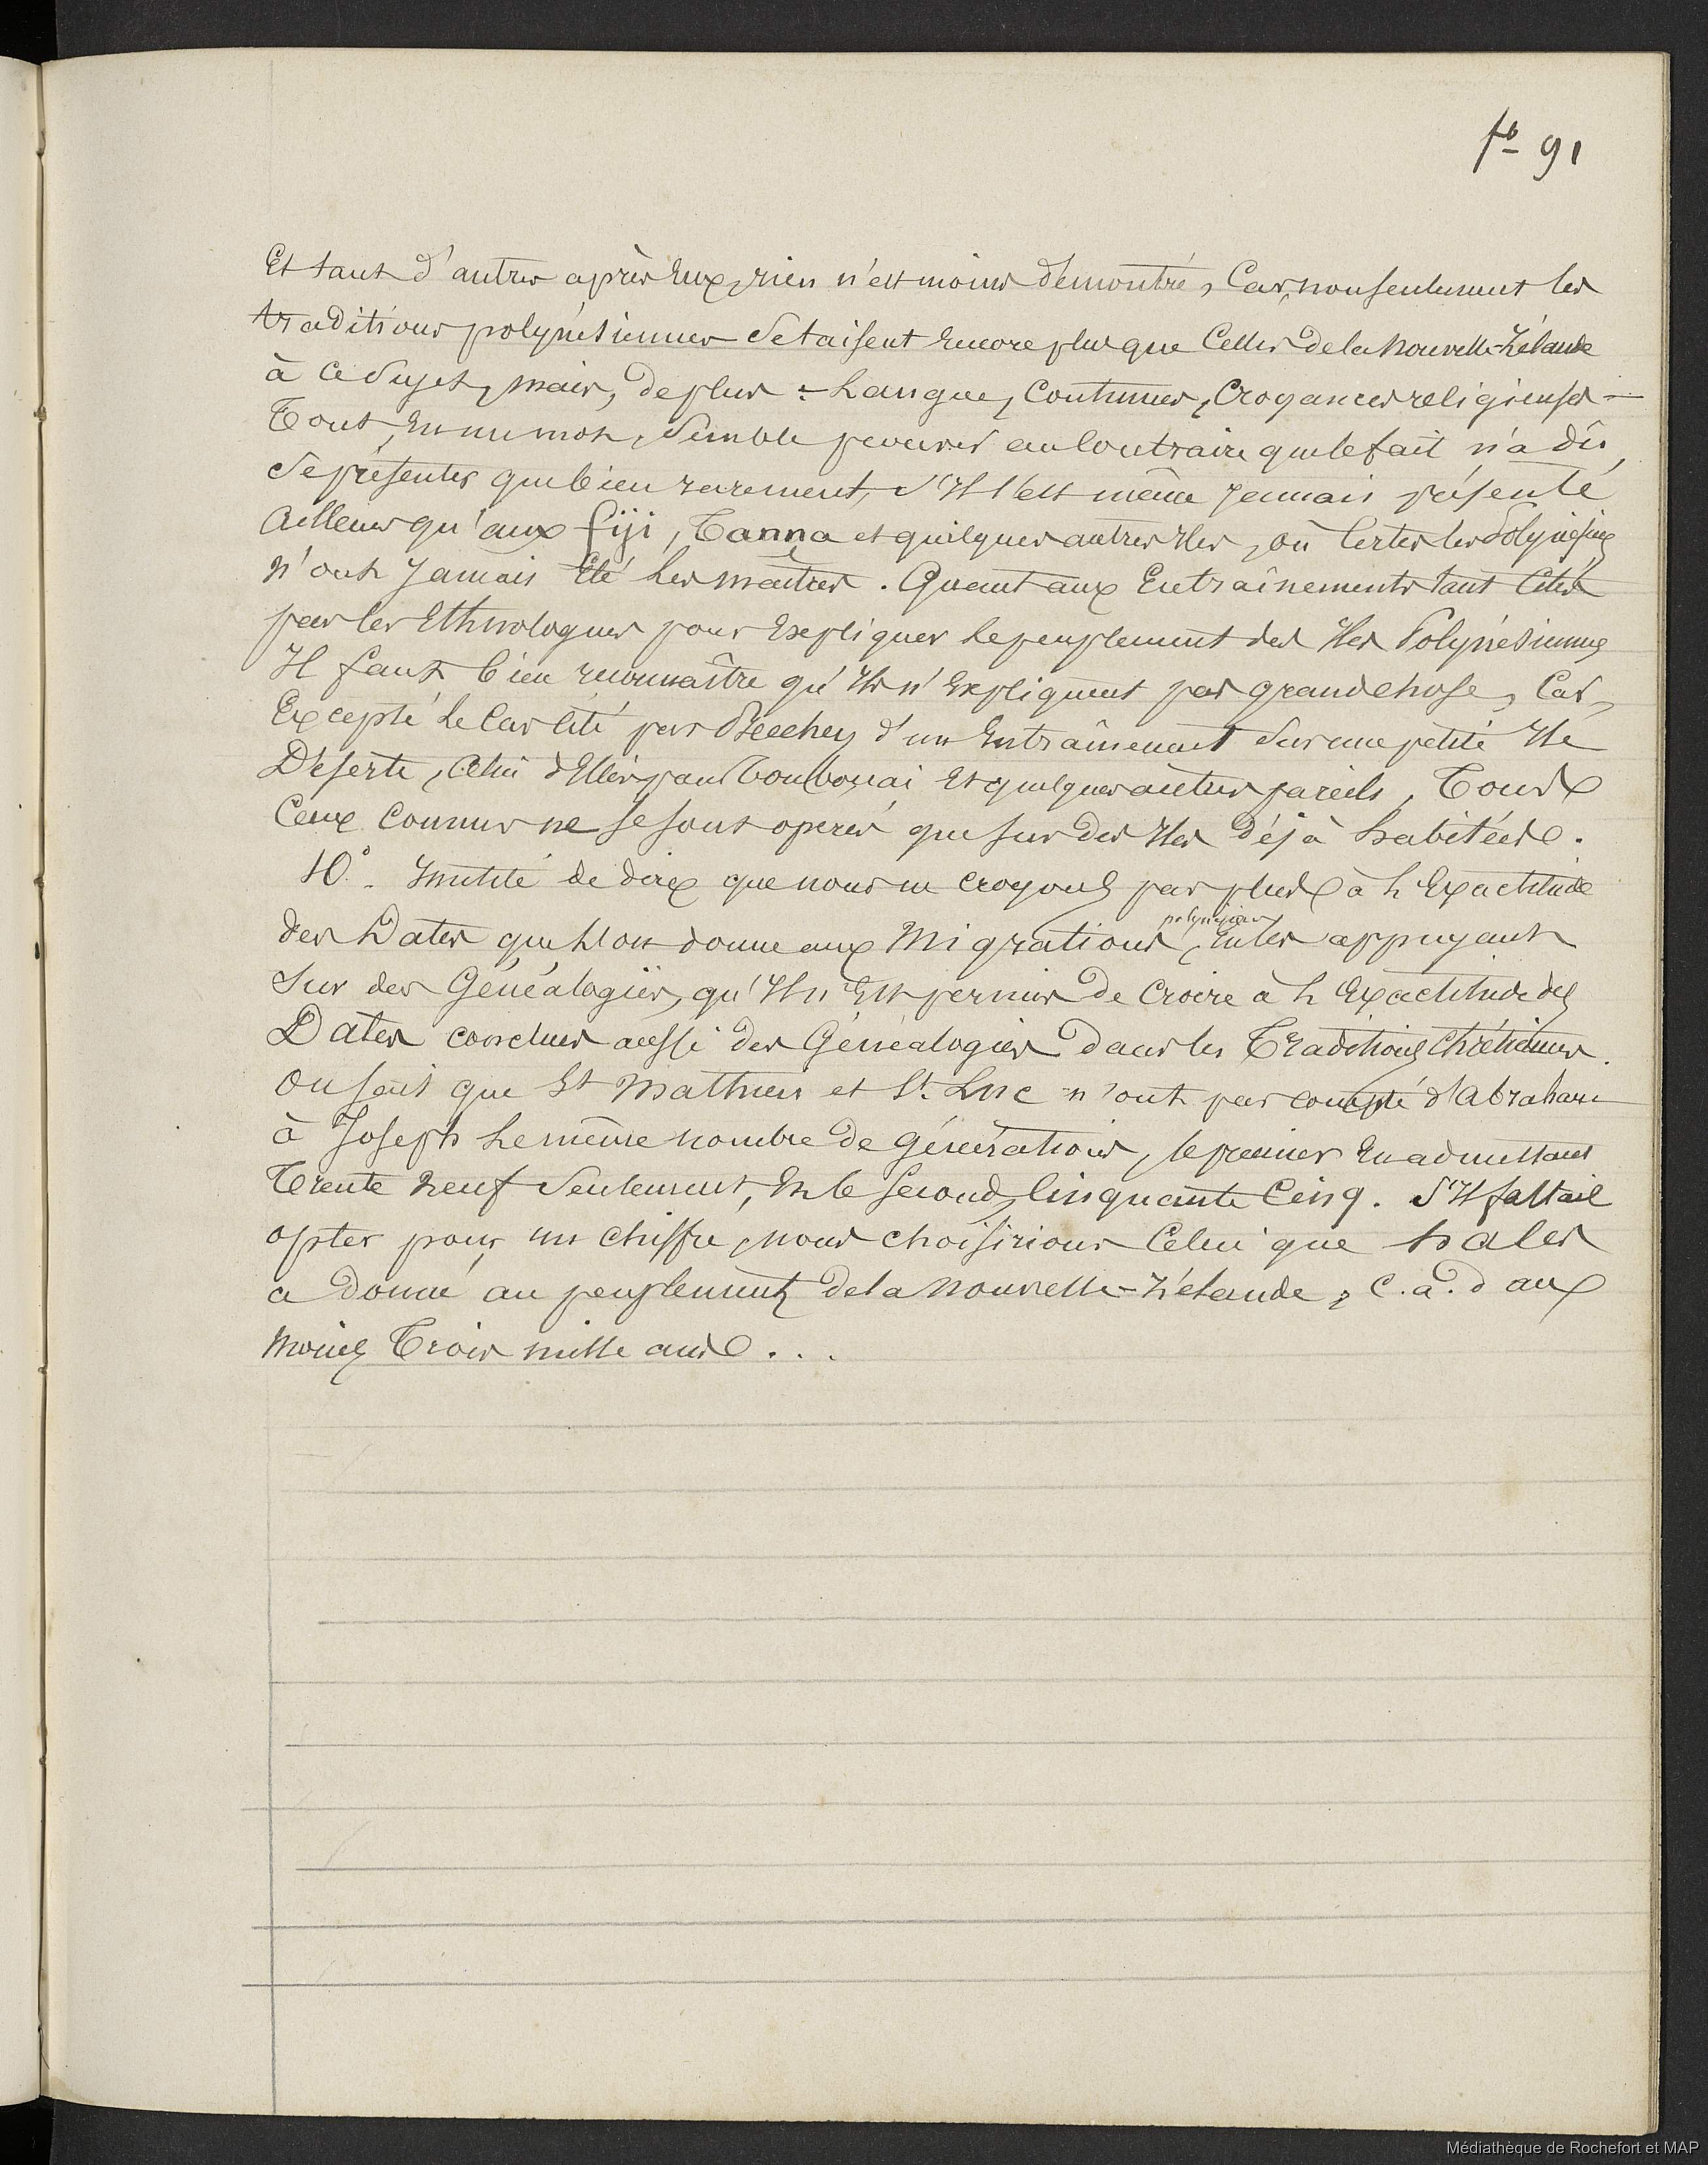 fo 91
Et tant d'autres après Eux, rien n'est moins démontré, Car, non seulement les
traditions polynésiennes se taisent encore plus que Celles de la Nouvelle-Zélande
à ce sujet, mais, de plus :- Langue, Coutumes, Croyances religieuses -
Tout, En un mot, semble prouver au Contraire que le fait n'a dû
se présenter que bien rarement, s'Il s'est même jamais présenté
Ailleurs qu'aux fiji, Tanna et quelques autres Iles, où Certes les Polynésiens
n'ont Jamais Eté les maîtres. Quant aux Entraînements tant Cités
par les Ethnologues pour Expliquer le peuplement des Iles Polynésiennes
Il faut bien reconnaître qu'Ils n'Expliquent pas grand chose, Car,
Excepté le Cas Cité par Beechey d'un Entraînement sur une petite Ile
Déserte, Celui d'Ellis pour Toubouai Et quelques autres pareils, Tous
Ceux Connus ne se sont opérés que sur des Iles déjà habitées.
10° - Inutile de dire que nous ne Croyons pas plus à l'Exactitude
des Dates que l'on donne aux Migrations polynésiennes, En les appuyant
Sur des Généalogies, qu'Il n'Est permis de Croire à l'Exactitude des
Dates conclues aussi des Généalogies dans les Traditions Chrétiennes.
On sait que St Mathieu et St. Luc n'ont pas compté d'Abraham
à Joseph le même nombre de générations, le premier En admettant
Trente neuf seulement, Et le second, Cinquante Cinq. S'Il fallait
opter pour un chiffre, nous choisirions Celui que hales
a donné au peuplement de la Nouvelle-Zélande, c.à.d au
Moins Trois mille ans...
Médiathèque de Rochefort et MAP